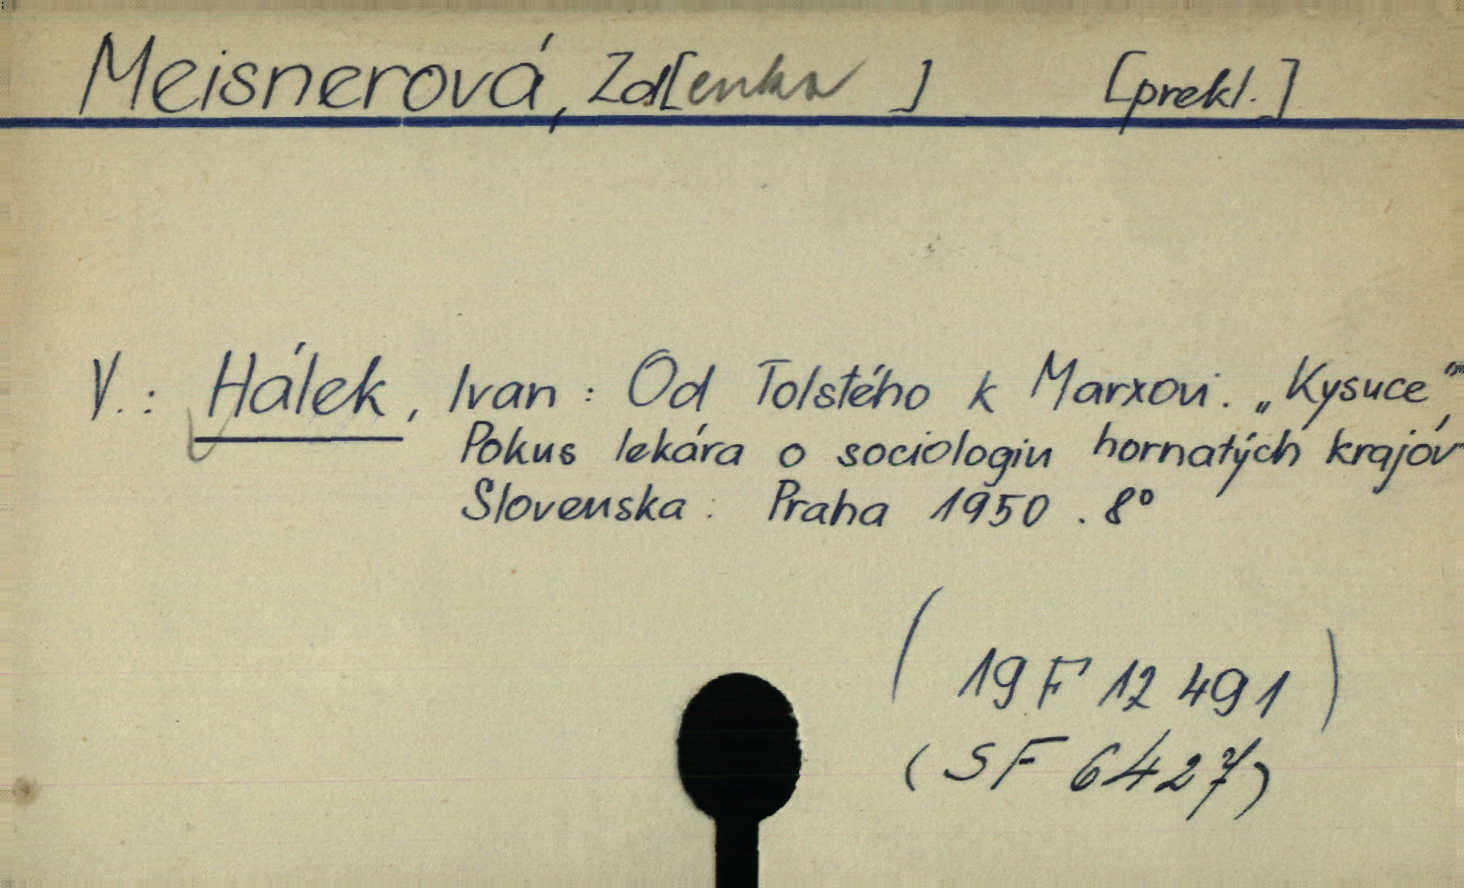 Meisnerová, Zd[enka ] [prekl.]
V.: Hálek, Ivan: Od Tolstého k Marxovi. „Kysuce"
Pokus lekára o sociologiu hornatých krajóv
Slovenska. Praha 1950. 8°
(19 F 12 491)
(SF 6427)